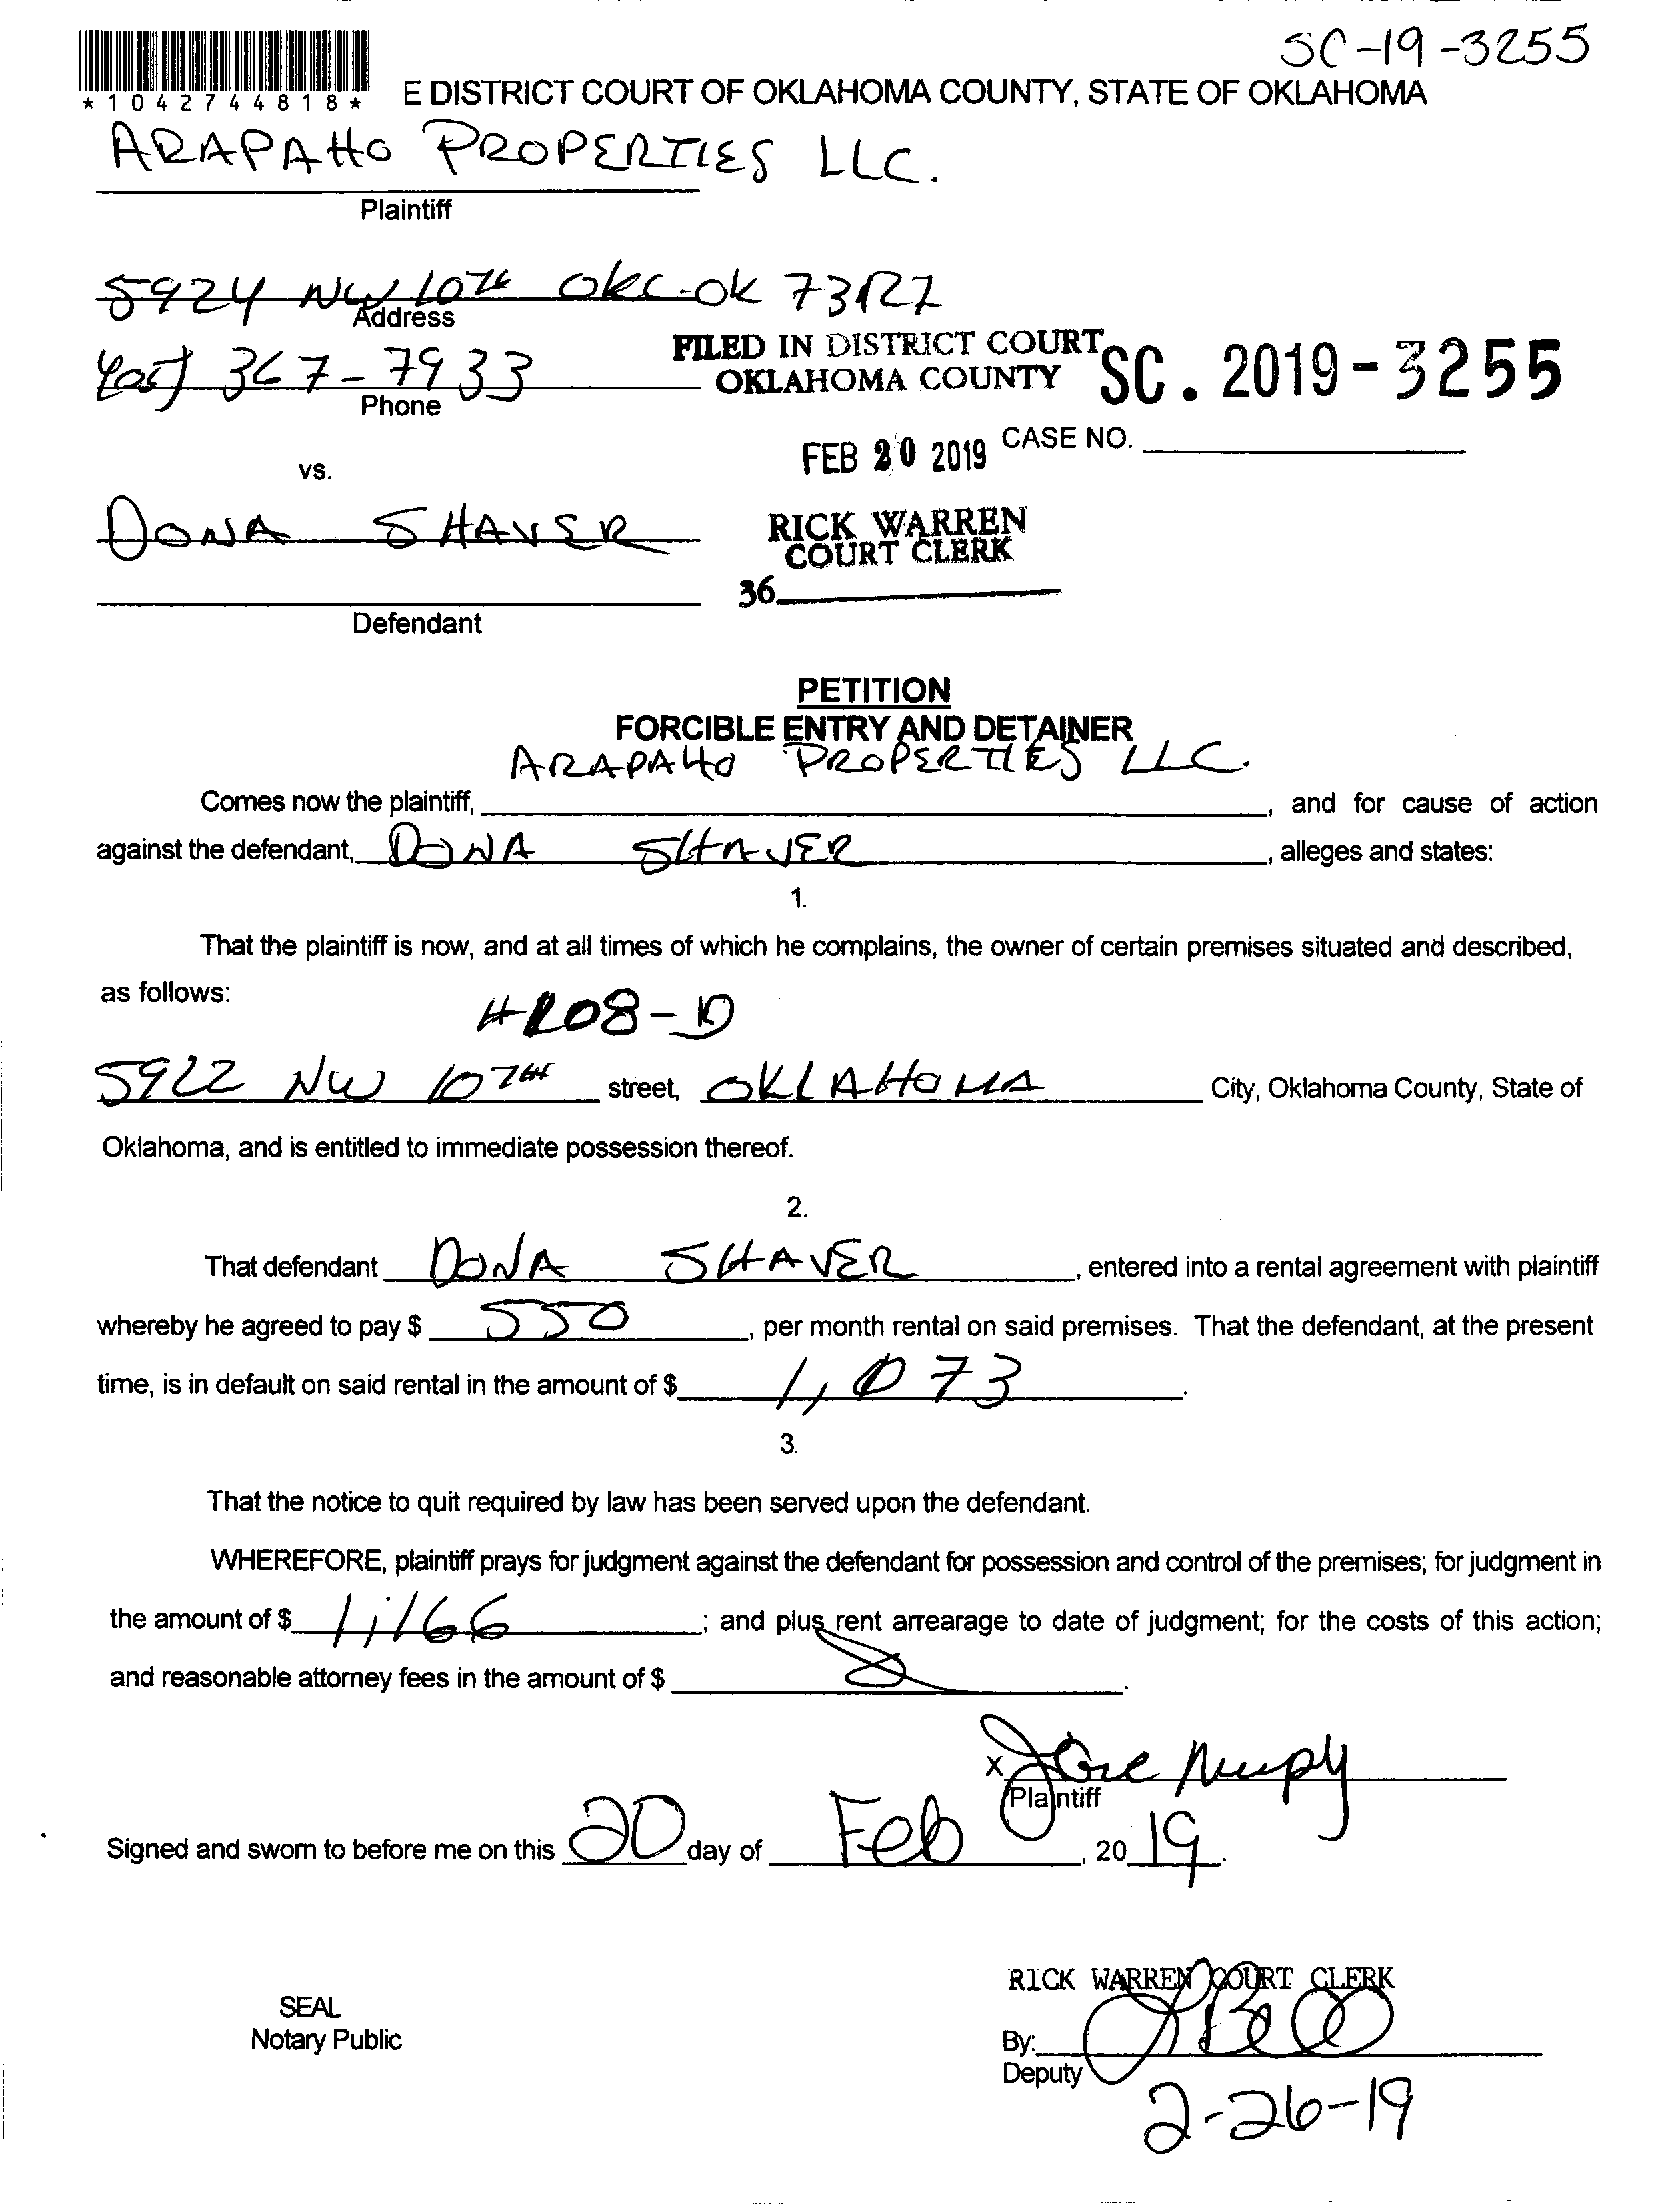 SC-19-3255
*1042744818*
E DISTRICT COURT OF OKLAHOMA COUNTY, STATE OF OKLAHOMA
ARAPAHO PROPERTIES LLC.
Plaintiff
5924 NW 10TH OKC-OK 73127
Address
405) 367-7933
Phone
FILED IN DISTRICT COURT
OKLAHOMA COUNTY
SC. 2019-3255
FEB 20 2019
CASE NO.
vs.
DONA SHAVER
RICK WARREN
COURT CLERK
36
Defendant
PETITION
FORCIBLE ENTRY AND DETAINER
ARAPAHO PROPERTIES LLC.
Comes now the plaintiff, , and for cause of action
against the defendant, DONA SHAVER, alleges and states:
1.
That the plaintiff is now, and at all times of which he complains, the owner of certain premises situated and described,
as follows:
#208-D
5922 NW 10TH street, OKLAHOMA City, Oklahoma County, State of
Oklahoma, and is entitled to immediate possession thereof.
2.
That defendant DONA SHAVER, entered into a rental agreement with plaintiff
whereby he agreed to pay $ 550, per month rental on said premises. That the defendant, at the present
time, is in default on said rental in the amount of $ 1,073.
3.
That the notice to quit required by law has been served upon the defendant.
WHEREFORE, plaintiff prays for judgment against the defendant for possession and control of the premises; for judgment in
the amount of $ 1,166; and plus rent arrearage to date of judgment; for the costs of this action;
and reasonable attorney fees in the amount of $ .
x
Plaintiff
Signed and sworn to before me on this 20 day of Feb, 2019.
RICK WARREN COURT CLERK
SEAL
Notary Public
By:
Deputy
2-26-19